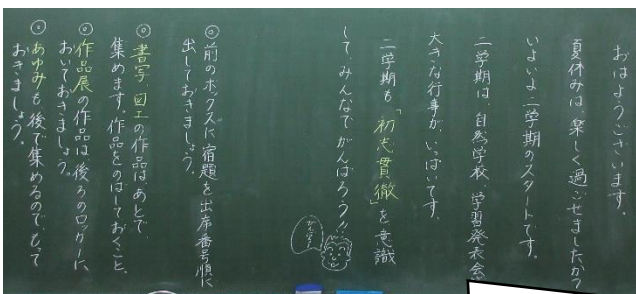 おはようございます。
夏休みは、楽しく過ごせましたか？
いよいよ二学期のスタートです。
二学期は、自然学校、学習発表会
大きな行事が、いっぱいです。
二学期も「初志貫徹」を意識
して、みんなでがんばろう!!
がんばろう
◎前のボックスに宿題を出席番号順に
出しておきましょう。
◎書写、図工の作品はあとで、
集めます。作品をのばしておくこと。
◎作品展の作品は、後ろのロッカーに、
おいておきましょう。
◎あゆみも後で集めるので、もって
おきましょう。